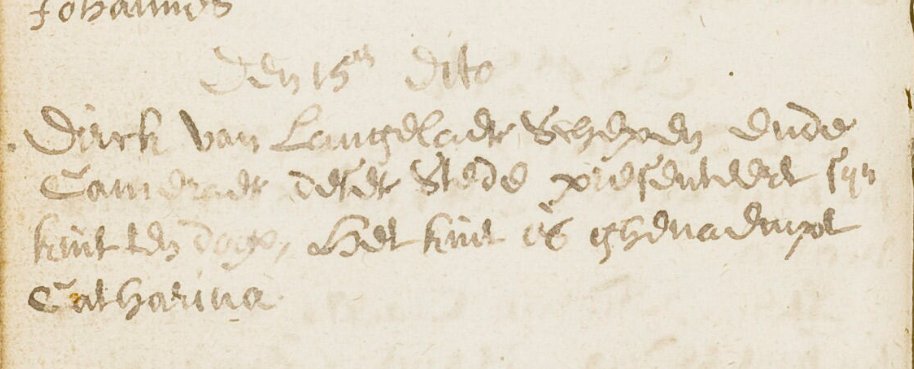 Johannes
Den 15en dito
Dirck van Langelaer Schepen ende
Cameraer deser Stede presenteert syn
kint ten doope, Het kint is ghenaempt
Catharina